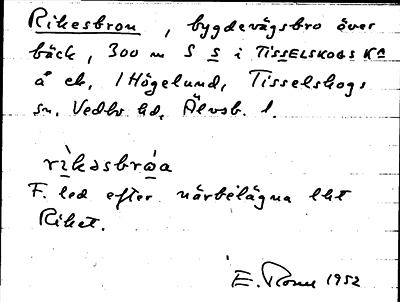 Rikesbron, bygdevägsbro över
bäck, 300 m S s i TISSELSKOGS Kª
å ek, 1 Högelund, Tisselskogs
sn, Vedbo hd, Älvsb. l.
rìkəsbrωa
F. led efter närbelägna lht
Riket.
E. 1952